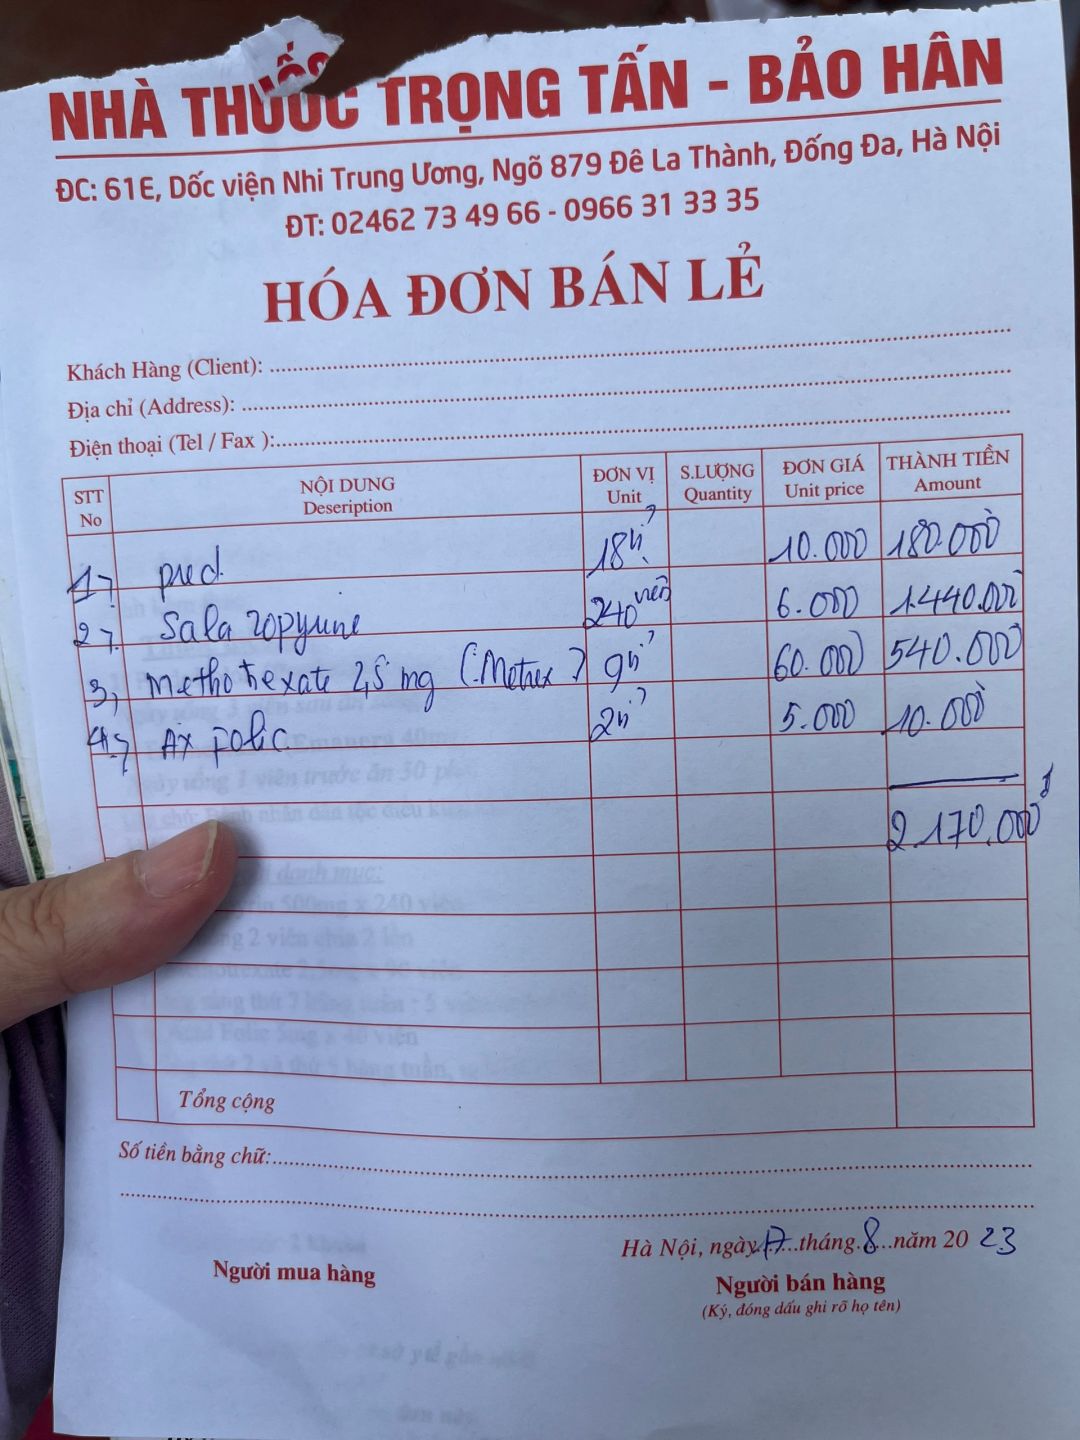 NHÀ THUỐC TRỌNG TẤN - BẢO HÂN
ĐC: 61E, Dốc viện Nhi Trung Ương, Ngõ 879 Đê La Thành, Đống Đa, Hà Nội
ĐT: 02462 73 49 66 - 0966 31 33 35
HÓA ĐƠN BÁN LẺ
Khách Hàng (Client):
Địa chỉ (Address):
Điện thoại (Tel / Fax ):
STT No NỘI DUNG Deseription ĐƠN VỊ Unit S.LƯỢNG Quantity ĐƠN GIÁ Unit price THÀNH TIỀN Amount
1, pred 18 vỉ 10.000 180.000
2, Sala zopyrine 240 viên 6.000 1.440.000
3, Methotrexate 2,5 mg (Metrex) 9 vỉ 60.000 540.000
4, AX folic 2 vỉ 5.000 10.000
2.170.000đ
Tổng cộng
Số tiền bằng chữ:
Hà Nội, ngày 17 tháng 8 năm 20 23
Người mua hàng Người bán hàng
(Ký, đóng dấu ghi rõ họ tên)